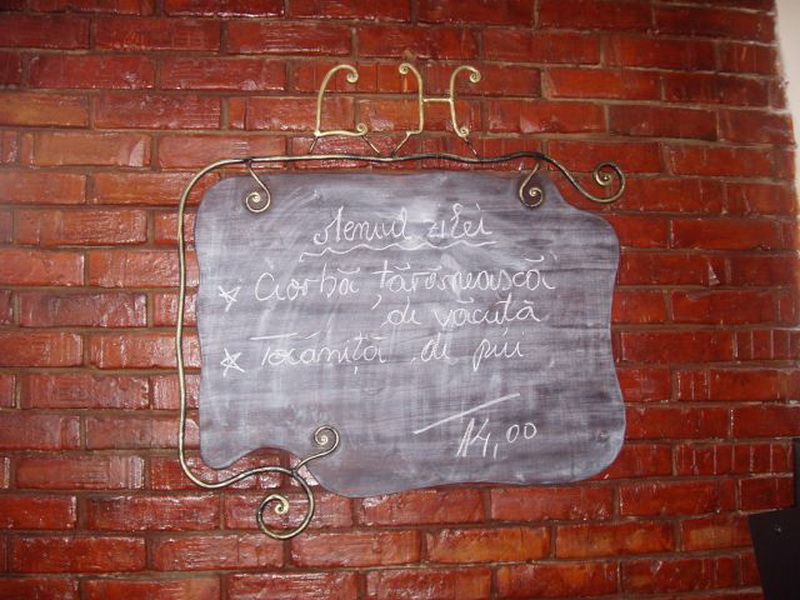 LH
Meniul zilei
* Ciorbă țărănească
de văcuță
* Tocăniță de pui
14,00